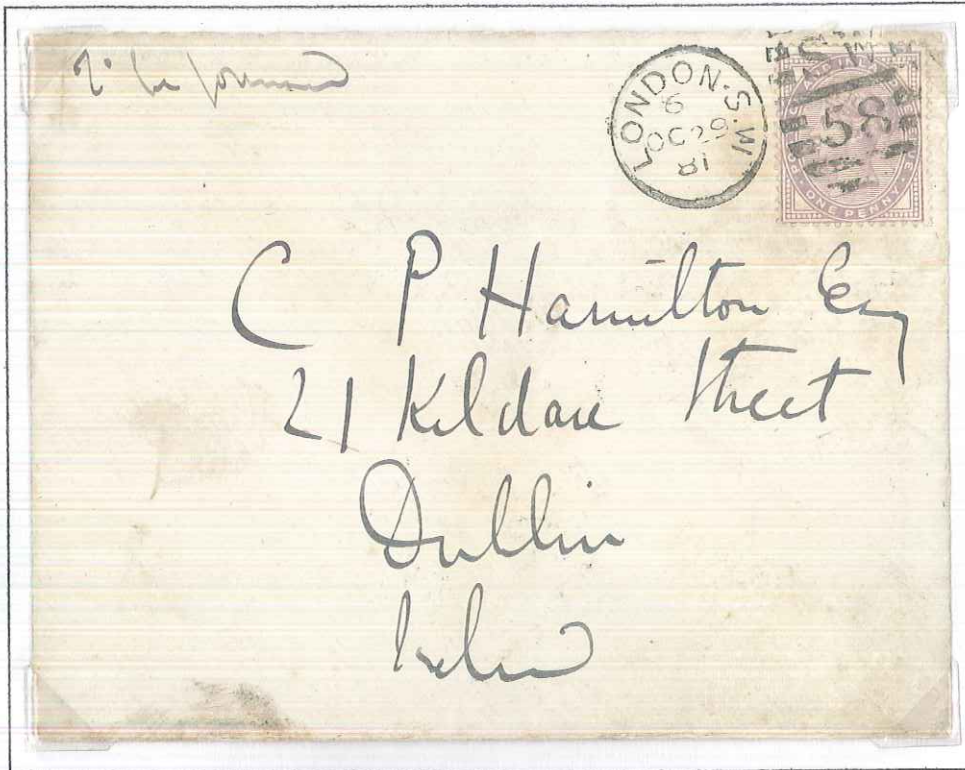 To be forwarded
LONDON.S.W
6
OC 29
81
S.W
58
ONE PENNY
C P Hamilton Esq
21 Kildare Street
Dublin
Ireland